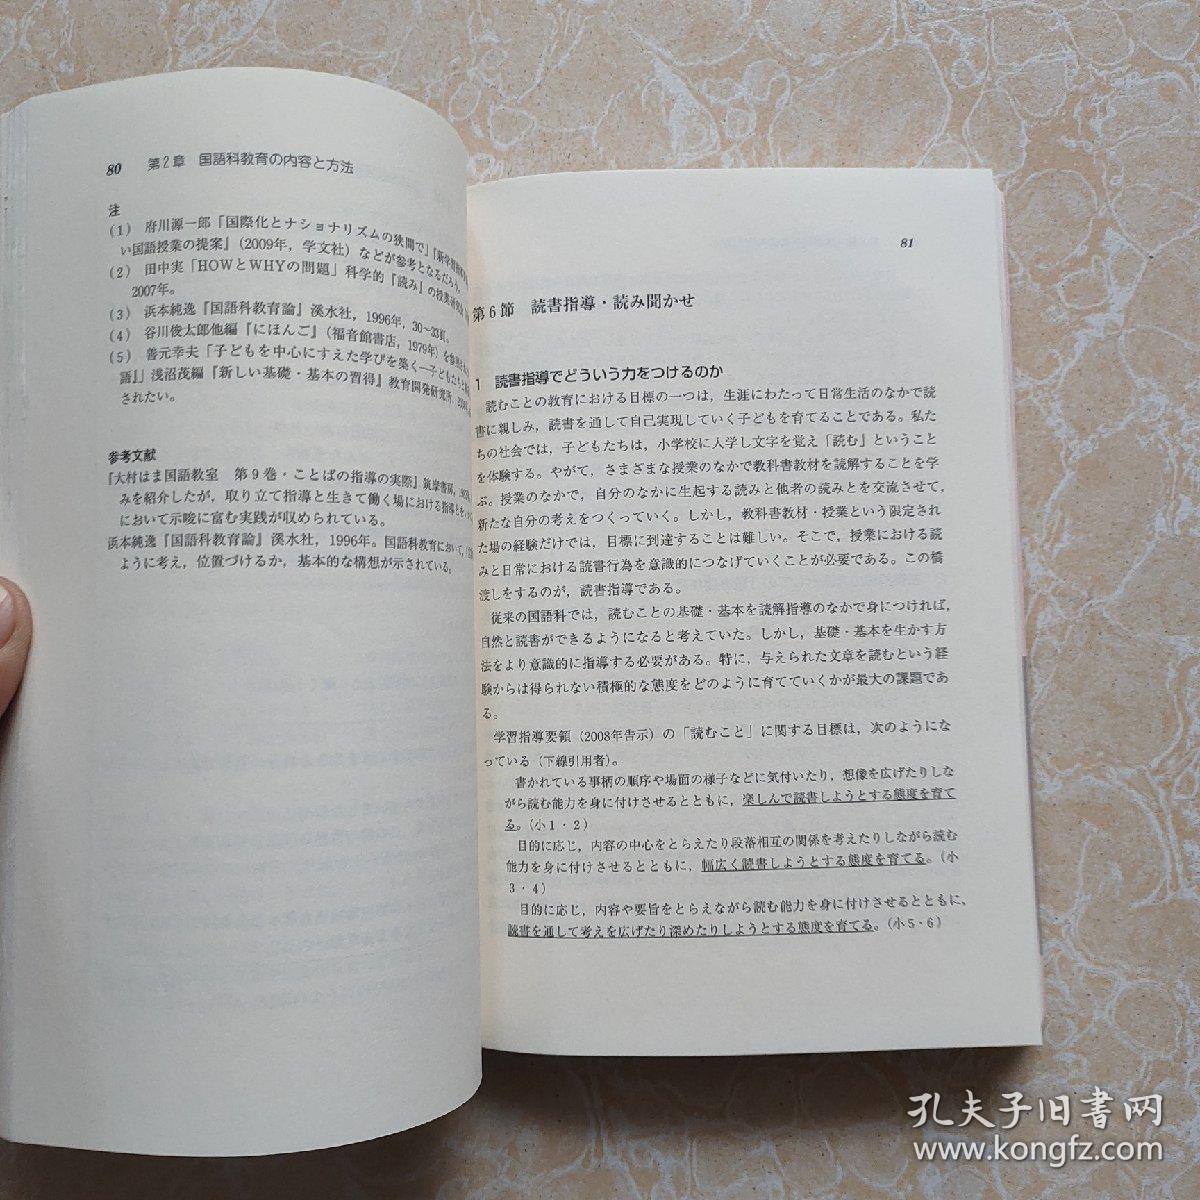 80 第2章 国語科教育の内容と方法
注
(1) 府川源一郎「国際化とナショナリズムの狭間で」
い国語授業の提案』(2009年，学文社) などが参考となるだろう。
(2) 田中実「HOWとWHYの問題」科学的『読み』の授業
2007年。
(3) 浜本純逸『国語科教育論』溪水社，1996年，30~33頁。
(4) 谷川俊太郎他編『にほんご』(福音館書店，1979年) を
(5) 善元幸夫「子どもを中心にすえた学びを築く―子どもたちと
語』」浅沼茂編『新しい基礎・基本の習得』教育開発研究所，
されたい。
参考文献
『大村はま国語教室 第9巻・ことばの指導の実際』筑摩書房，
みを紹介したが，取り立て指導と生きて働く場における指導と
において示唆に富む実践が収められている。
浜本純逸『国語科教育論』溪水社，1996年。国語科教育において，
ように考え，位置づけるか，基本的な構想が示されている。
81
第6節 読書指導・読み聞かせ
1 読書指導でどういう力をつけるのか
読むことの教育における目標の一つは，生涯にわたって日常生活のなかで読
書に親しみ，読書を通して自己実現していく子どもを育てることである。私た
ちの社会では，子どもたちは，小学校に入学し文字を覚え「読む」ということ
を体験する。やがて，さまざまな授業のなかで教科書教材を読解することを学
ぶ。授業のなかで，自分のなかに生起する読みと他者の読みとを交流させて，
新たな自分の考えをつくっていく。しかし，教科書教材・授業という限定され
た場の経験だけでは，目標に到達することは難しい。そこで，授業における読
みと日常における読書行為を意識的につなげていくことが必要である。この橋
渡しをするのが，読書指導である。
従来の国語科では，読むことの基礎・基本を読解指導のなかで身につければ，
自然と読書ができるようになると考えていた。しかし，基礎・基本を生かす方
法をより意識的に指導する必要がある。特に，与えられた文章を読むという経
験からは得られない積極的な態度をどのように育てていくかが最大の課題であ
る。
学習指導要領 (2008年告示) の「読むこと」に関する目標は，次のようにな
っている (下線引用者)。
書かれている事柄の順序や場面の様子などに気付いたり，想像を広げたりしな
がら読む能力を身に付けさせるとともに，楽しんで読書しようとする態度を育て
る。(小1・2)
目的に応じ，内容の中心をとらえたり段落相互の関係を考えたりしながら読む
能力を身に付けさせるとともに，幅広く読書しようとする態度を育てる。(小
3・4)
目的に応じ，内容や要旨をとらえながら読む能力を身に付けさせるとともに，
読書を通して考えを広げたり深めたりしようとする態度を育てる。(小5・6)
孔夫子旧书网
www.kongfz.com